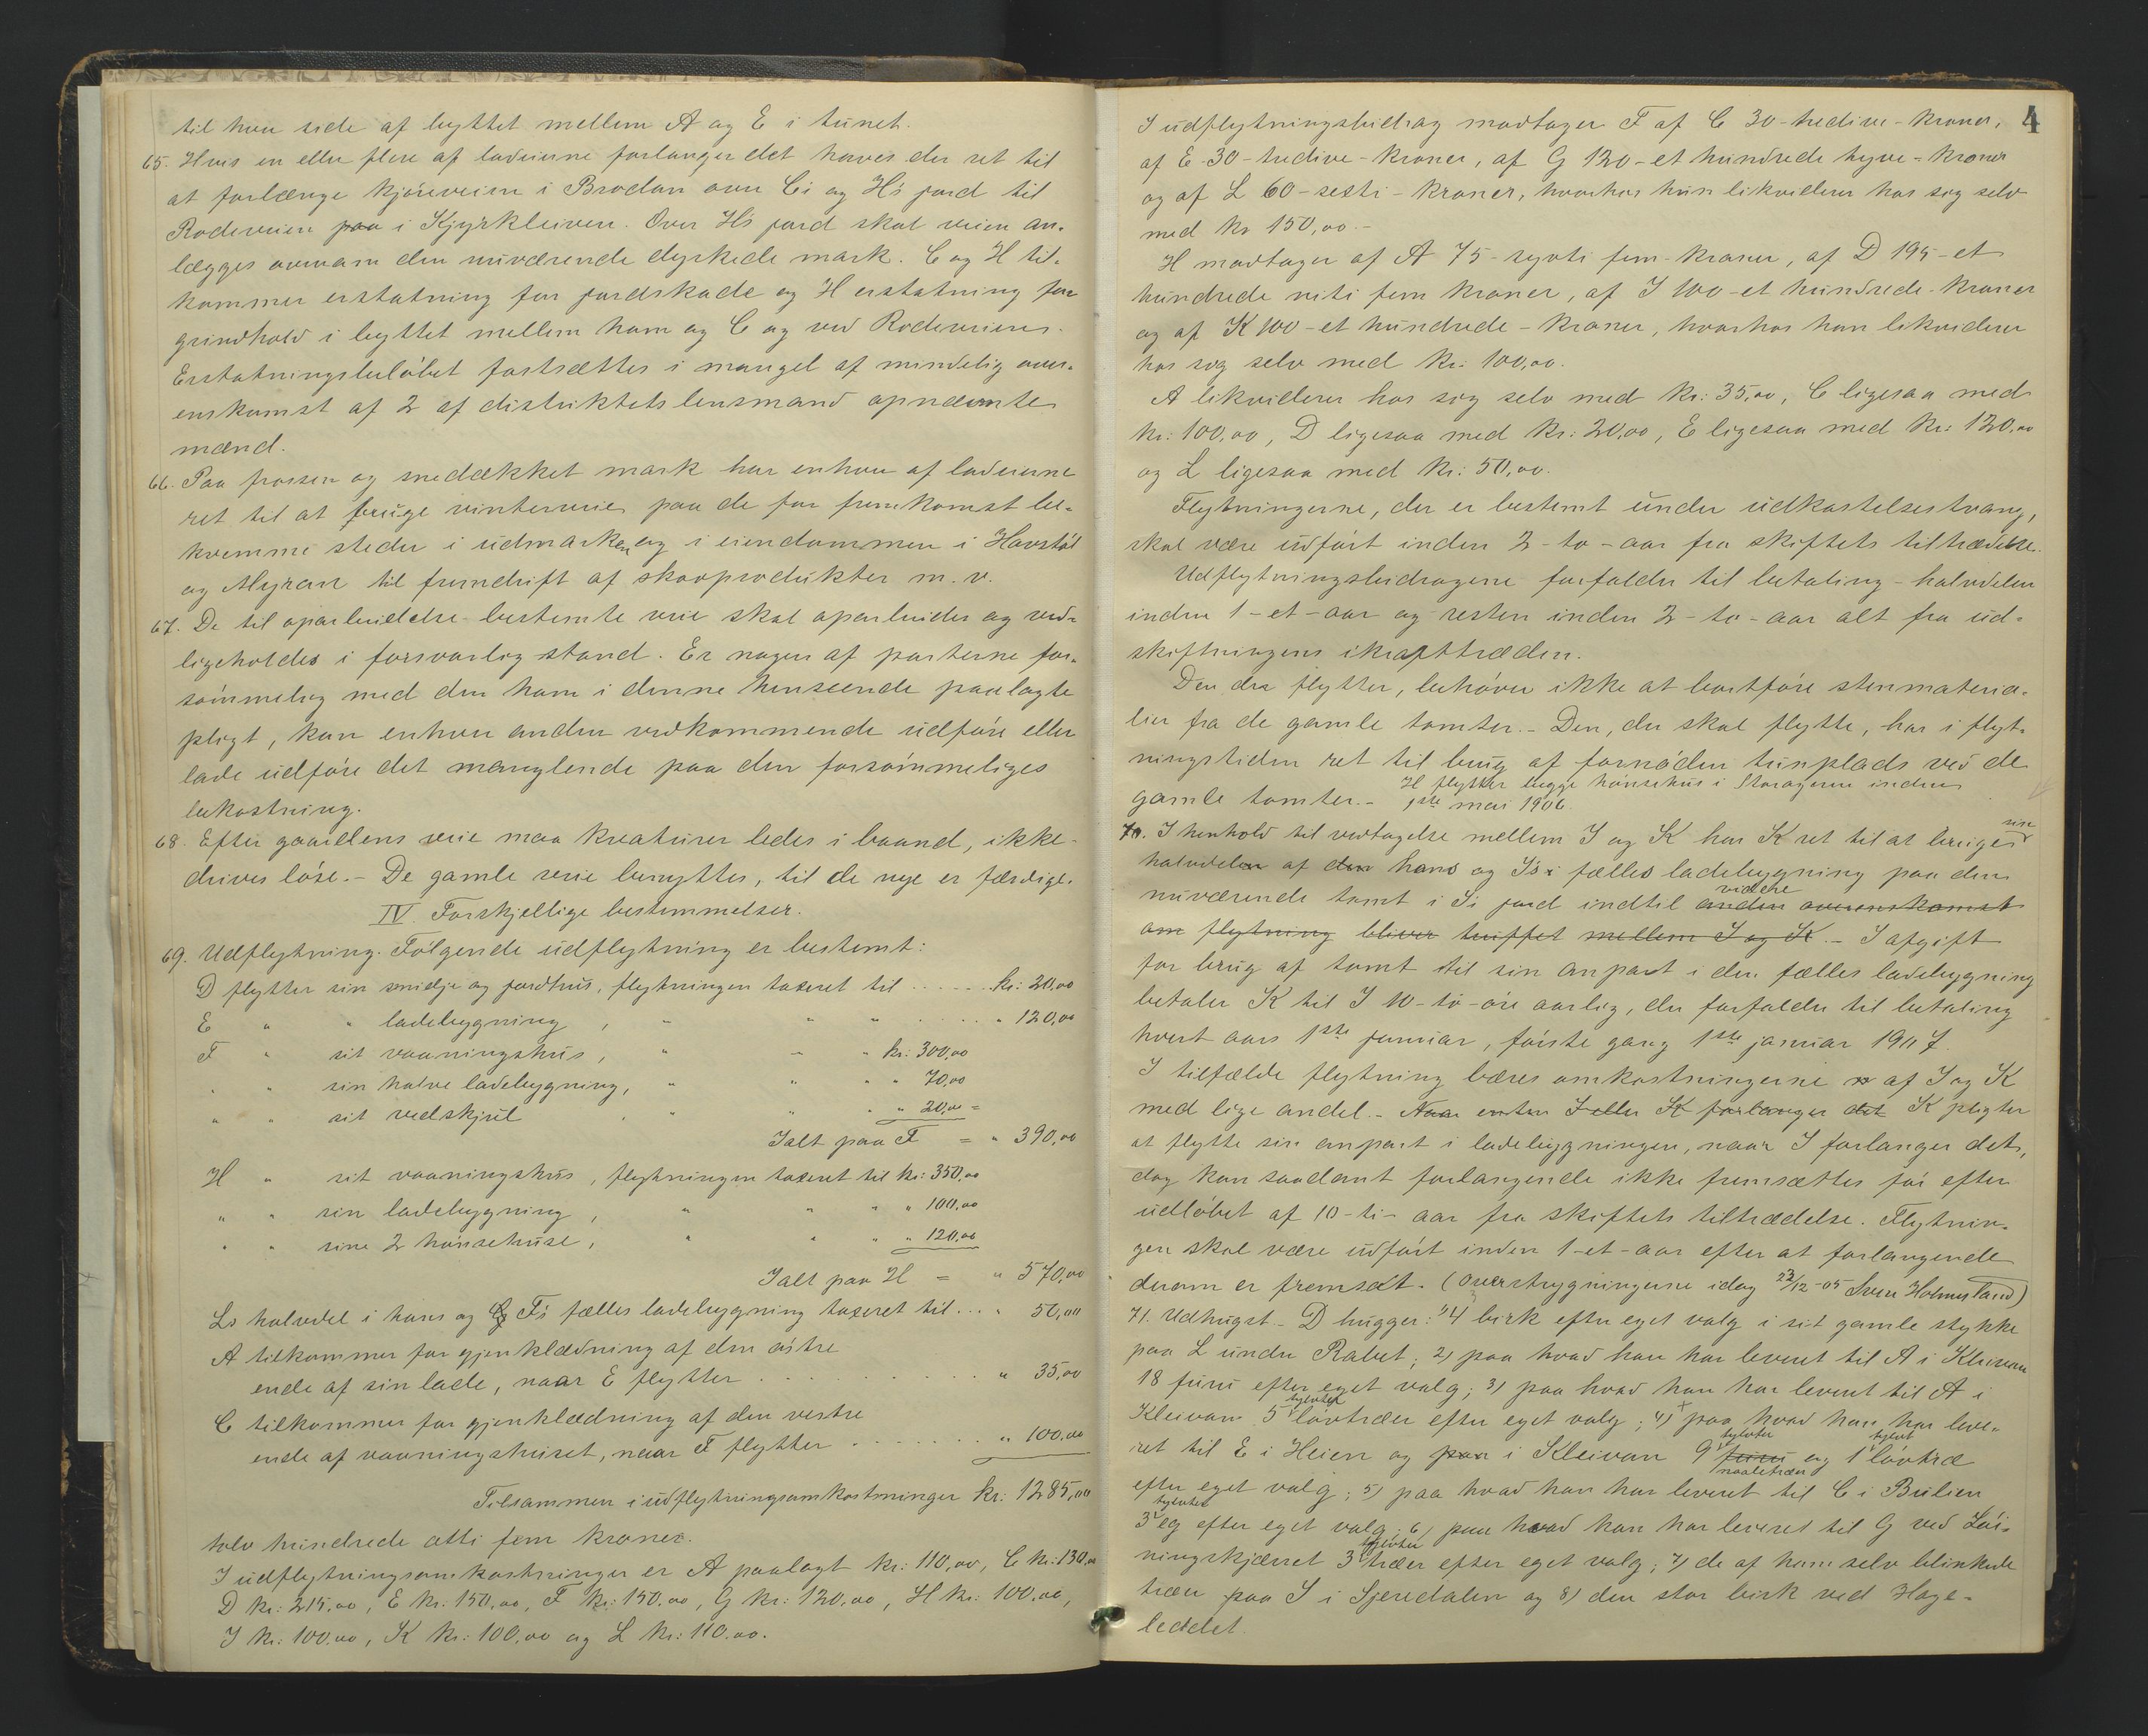 til hver side af byttet mellem A og E i tunet.
65. Hvis en eller flere af lodeierne forlanger det haves der ret til
at forlænge kjøreveien i Brodan over Ci og H's jord til
Rodeveien paa i Kjyrkleiven. Over H's jord skal veien an-
lægges ovenom den nuværende dyrkede mark. C og H til-
kommer erstatning for jordskade og H erstatning for
grindhold i byttet mellem ham og C og ved Rodeveien.
Erstatningsbeløbet fastsættes i mangel af mindelig over-
enskomst af 2 af distriktets lensmand opnævnte
mænd.
66. Paa frossen og snedækket mark har enhver af lodeierne
ret til at bruge vinterveie paa de for fremkomst be-
kvemme steder i udmarken og i eiendommen i Havstøl
og Myran til fremdrift af skovprodukter m. v.
67. De til oparbeidelse bestemte veie skal oparbeides og ved-
ligeholdes i forsvarlig stand. Er nogen af parterne for-
sømmelig med den ham i denne henseende paalagte
pligt, kan enhver anden vedkommende udføre eller
lade udføre det manglende paa den forsømmeliges
bekostning.
68. Efter gaardens veie maa kreaturer ledes i baand, ikke
drives løse. – De gamle veie benyttes, til de nye er færdige.
IV. Forskjellige bestemmelser.
69. Udflytning. Følgende udflytning er bestemt:
D flytter sin smidje og jordhus, flytningen taxeret til ...... kr: 20,00
E " " ladebygning , " " " ..... " 120,00
F " sit vaaningshus, " " " kr: 300,00
" " sin halve ladebygning, " " " " 70,00
" " sit vedskjul " " " " 20,00 =
Ialt paa F = " 390,00
H " sit vaaningshus, flytningen taxeret til kr: 350,00
" " sin ladebygning , " " " " 100,00
" " sine 2 hønsehuse, " " " " 120,00
Ialt paa H = " 570,00
Ls halvdel i hans og F's fælles ladebygning taxeret til ... " 50,00
A tilkommer for gjenklædning af den østre
ende af sin lade, naar E flytter .......... " 35,00
C tilkommer for gjenklædning af den vestre
ende af vaaningshuset, naar F flytter ....... " 100,00
Tilsammen i udflytningsomkostninger kr: 1285,00
tolv hundrede otti fem kroner.
I udflytningsomkostninger er A paalagt kr: 110,00, C kr: 130,00
D kr: 215,00, E kr: 150,00, F kr: 150,00, G kr: 120,00, H kr: 100,00,
I kr: 100,00, K kr: 100,00 og L kr: 110,00.
4
I udflytningsbidrag modtager F af C 30 - tredive - kroner,
af E 30 - tredive - kroner, af G 120 - et hundrede tyve - kroner
og af L 60 - seksti - kroner, hvorhos hun likviderer hos sig selv
med kr 150,00. -
H modtager af A 75 - sytti fem - kroner, af D 195 - et
hundrede niti fem kroner, af I 100 - et hundrede - kroner
og af K 100 - et hundrede - kroner, hvorhos han likviderer
hos sig selv med kr: 100,00.
A likviderer hos sig selv med kr: 35,00, C ligesaa med
kr: 100,00, D ligesaa med kr: 20,00, E ligesaa med kr: 120,00
og L ligesaa med kr: 50,00.
Flytningerne, der er bestemt under udkastelsestvang,
skal være udført inden 2 - to - aar fra skiftets tiltrædelse.
Udflytningsbidragene forfalder til betaling - halvdelen
inden 1 - et - aar og resten inden 2 - to - aar alt fra ud-
skiftningens ikrafttræden.
Den der flytter, behøver ikke at bortføre stenmateria-
lier fra de gamle tomter. - Den, der skal flytte, har i flyt-
ningstiden ret til brug af fornøden tunplads ved de
gamle tomter. - H flytter begge hønsehus i Storageren inden
1ste mai 1906.
70. I henhold til vedtagelse mellem I og K har K ret til at bruge sin
halvdelen af den hans og I's i fælles ladebygning paa den
nuværende tomt i I's jord indtil videre anden overenskomst
om flytning bliver truffet mellem I og K. - I afgift
for brug af tomt til sin anpart i den fælles ladebygning
betaler K til I 10 - ti - øre aarlig, der forfalder til betaling
hvert aars 1ste januar, første gang 1ste januar 1907.
I tilfælde flytning bæres omkostningerne af I og K
med lige andel. - Naar enten I eller K forlanger det K pligter
at flytte sin anpart i ladebygningen, naar I forlanger det,
dog kan saadant forlangende ikke fremsættes før efter
udløbet af 10 - ti - aar fra skiftets tiltrædelse. Flytnin-
gen skal være udført inden 1 - et - aar efter at forlangende
derom er fremsat. (Overstrygningerne idag 23/12-05 Sven Holmesland)
71. Udhugst. - D hugger: 1) 4 birk efter eget valg i sit gamle stykke
paa L under Rabet; 2) paa hvad han har leveret til A i Kleivan
18 furu efter eget valg; 3) paa hvad han har leveret til A i
Kleivan 5 tylvter løvtræer efter eget valg; 4) paa hvad han har leve-
ret til E i Heien og paa i Kleivan 9 tylvter furu naaletræer og 1 tylvt løvtræ
efter eget valg; 5) paa hvad han har leveret til C i Bulien
3 tylvter eg efter eget valg; 6) paa hvad han har leveret til G ved Løi-
ningskjærret 3 tylvter træer efter eget valg; 7) de af ham selv blinkede
træer paa I i Sjeredalen og 8) den stor birk ved Hage-
leddet.